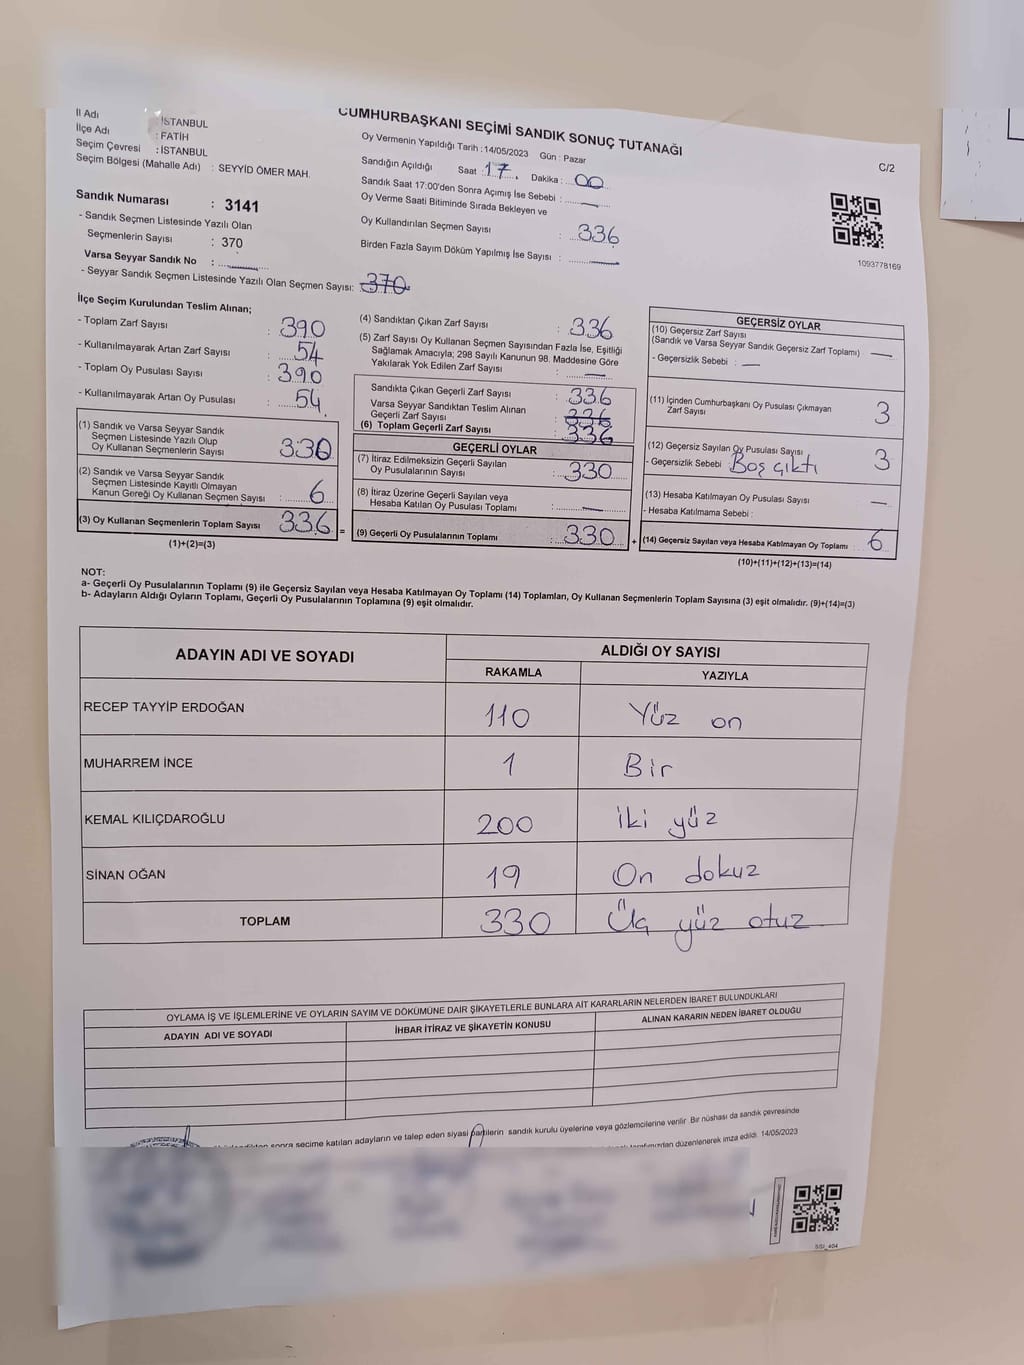 İl Adı : İSTANBUL
İlçe Adı : FATİH
Seçim Çevresi : İSTANBUL
Seçim Bölgesi (Mahalle Adı) : SEYYİD ÖMER MAH.
Sandık Numarası : 3141
- Sandık Seçmen Listesinde Yazılı Olan
Seçmenlerin Sayısı : 370
Varsa Seyyar Sandık No :
- Seyyar Sandık Seçmen Listesinde Yazılı Olan Seçmen Sayısı: 370
CUMHURBAŞKANI SEÇİMİ SANDIK SONUÇ TUTANAĞI
Oy Vermenin Yapıldığı Tarih : 14/05/2023 Gün : Pazar
Sandığın Açıldığı Saat : 17 Dakika : 00
Sandık Saat 17:00'den Sonra Açımış İse Sebebi :
Oy Verme Saati Bitiminde Sırada Bekleyen ve
Oy Kullandırılan Seçmen Sayısı : 336
Birden Fazla Sayım Döküm Yapılmış İse Sayısı :
C/2
1093778169
İlçe Seçim Kurulundan Teslim Alınan;
- Toplam Zarf Sayısı : 390
- Kullanılmayarak Artan Zarf Sayısı : 54
- Toplam Oy Pusulası Sayısı : 390
- Kullanılmayarak Artan Oy Pusulası : 54
(1) Sandık ve Varsa Seyyar Sandık
Seçmen Listesinde Yazılı Olup
Oy Kullanan Seçmenlerin Sayısı : 330
(2) Sandık ve Varsa Seyyar Sandık
Seçmen Listesinde Kayıtlı Olmayan
Kanun Gereği Oy Kullanan Seçmen Sayısı : 6
(3) Oy Kullanan Seçmenlerin Toplam Sayısı 336 =
(1)+(2)=(3)
(4) Sandıktan Çıkan Zarf Sayısı : 336
(5) Zarf Sayısı Oy Kullanan Seçmen Sayısından Fazla İse, Eşitliği
Sağlamak Amacıyla; 298 Sayılı Kanunun 98. Maddesine Göre
Yakılarak Yok Edilen Zarf Sayısı :
Sandıkta Çıkan Geçerli Zarf Sayısı : 336
Varsa Seyyar Sandıktan Teslim Alınan
Geçerli Zarf Sayısı : 336
(6) Toplam Geçerli Zarf Sayısı : 336
GEÇERLİ OYLAR
(7) İtiraz Edilmeksizin Geçerli Sayılan
Oy Pusulalarının Sayısı : 330
(8) İtiraz Üzerine Geçerli Sayılan veya
Hesaba Katılan Oy Pusulası Toplamı :
(9) Geçerli Oy Pusulalarının Toplamı : 330 +
GEÇERSİZ OYLAR
(10) Geçersiz Zarf Sayısı
(Sandık ve Varsa Seyyar Sandık Geçersiz Zarf Toplamı)
- Geçersizlik Sebebi :
(11) İçinden Cumhurbaşkanı Oy Pusulası Çıkmayan
Zarf Sayısı 3
(12) Geçersiz Sayılan Oy Pusulası Sayısı 3
- Geçersizlik Sebebi Boş çıktı
(13) Hesaba Katılmayan Oy Pusulası Sayısı
- Hesaba Katılmama Sebebi :
(14) Geçersiz Sayılan veya Hesaba Katılmayan Oy Toplamı 6
(10)+(11)+(12)+(13)=(14)
NOT:
a- Geçerli Oy Pusulalarının Toplamı (9) ile Geçersiz Sayılan veya Hesaba Katılmayan Oy Toplamı (14) Toplamları, Oy Kullanan Seçmenlerin Toplam Sayısına (3) eşit olmalıdır. (9)+(14)=(3)
b- Adayların Aldığı Oyların Toplamı, Geçerli Oy Pusulalarının Toplamına (9) eşit olmalıdır.
ADAYIN ADI VE SOYADI ALDIĞI OY SAYISI
RAKAMLA YAZIYLA
RECEP TAYYİP ERDOĞAN 110 Yüz on
MUHARREM İNCE 1 Bir
KEMAL KILIÇDAROĞLU 200 İki yüz
SİNAN OĞAN 19 On dokuz
TOPLAM 330 Üç yüz otuz
OYLAMA İŞ VE İŞLEMLERİNE VE OYLARIN SAYIM VE DÖKÜMÜNE DAİR ŞİKAYETLERLE BUNLARA AİT KARARLARIN NELERDEN İBARET BULUNDUKLARI
ADAYIN ADI VE SOYADI İHBAR İTİRAZ VE ŞİKAYETİN KONUSU ALINAN KARARIN NEDEN İBARET OLDUĞU
sonra seçime katılan adayların ve talep eden siyasi partilerin sandık kurulu üyelerine veya gözlemcilerine verilir. Bir nüshası da sandık çevresinde
düzenlenerek imza edildi. 14/05/2023